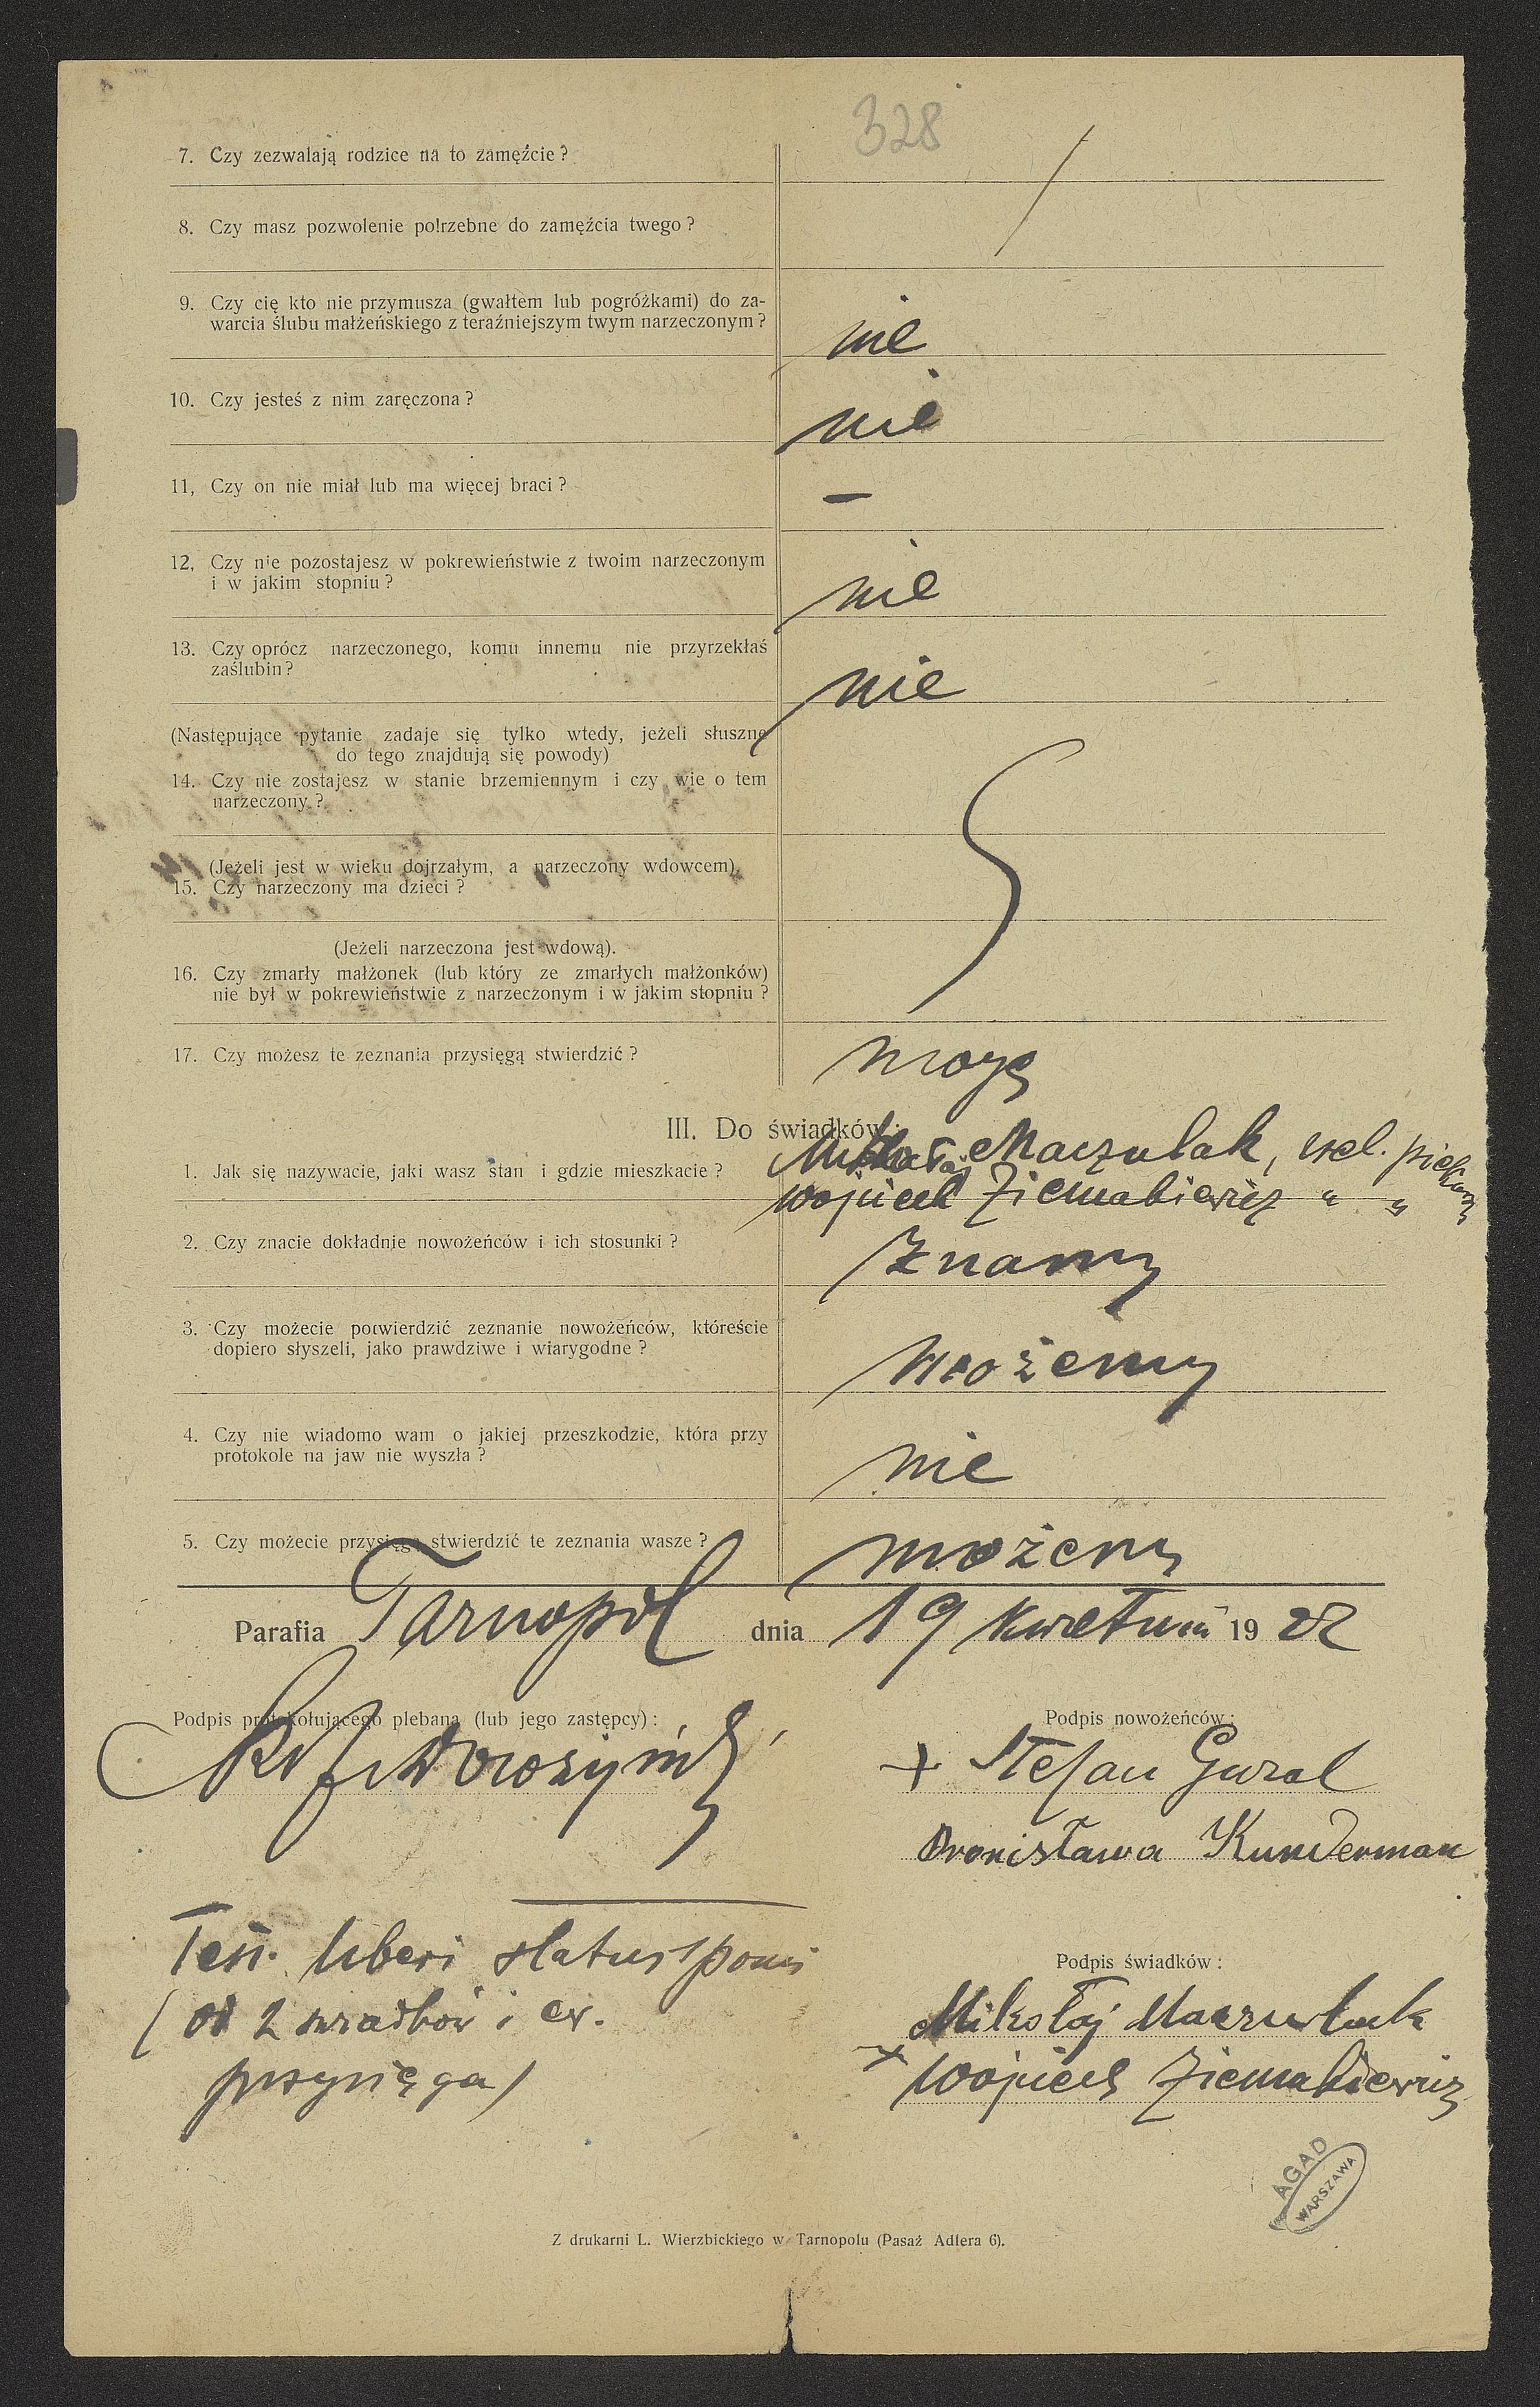 328
7. Czy zezwalają rodzice na to zamęźcie ?
8. Czy masz pozwolenie potrzebne do zamęźcia twego ?
9. Czy cię kto nie przymusza (gwałtem lub pogróżkami) do za-
warcia ślubu małżeńskiego z teraźniejszym twym narzeczonym ?
nie
10. Czy jesteś z nim zaręczona ?
nie
11, Czy on nie miał lub ma więcej braci ?
—
12, Czy nie pozostajesz w pokrewieństwie z twoim narzeczonym
i w jakim stopniu ?
nie
13. Czy oprócz narzeczonego, komu innemu nie przyrzekłaś
zaślubin ?
nie
(Następujące pytanie zadaje się tylko wtedy, jeżeli słuszne
do tego znajdują się powody)
14. Czy nie zostajesz w stanie brzemiennym i czy wie o tem
narzeczony ?
(Jeżeli jest w wieku dojrzałym, a narzeczony wdowcem).
15. Czy narzeczony ma dzieci ?
(Jeżeli narzeczona jest wdową).
16. Czy zmarły małżonek (lub który ze zmarłych małżonków)
nie był w pokrewieństwie z narzeczonym i w jakim stopniu ?
17. Czy możesz te zeznania przysięgą stwierdzić ?
mogę
III. Do świadków:
1. Jak się nazywacie, jaki wasz stan i gdzie mieszkacie ?
Mikołaj Maczulak,
Wojciech Ziemakiewicz " "
2. Czy znacie dokładnie nowożeńców i ich stosunki ?
Znamy
3. Czy możecie potwierdzić zeznanie nowożeńców, któreście
dopiero słyszeli, jako prawdziwe i wiarygodne ?
możemy
4. Czy nie wiadomo wam o jakiej przeszkodzie, która przy
protokole na jaw nie wyszła ?
nie
5. Czy możecie przysięgą stwierdzić te zeznania wasze ?
możemy
Parafia Tarnopol dnia 19 kwietnia 19 22
Podpis protokołującego plebana (lub jego zastępcy) :
Podpis nowożeńców :
+ Stefan Gural
Bronisława Kunderman
Test. liberi status sponsi
(od 2 świadków i ew.
przysięga)
Podpis świadków :
Mikołaj Maczulak
+ Wojciech Ziemakiewicz
AGAD
WARSZAWA
Z drukarni L. Wierzbickiego w Tarnopolu (Pasaż Adlera 6).